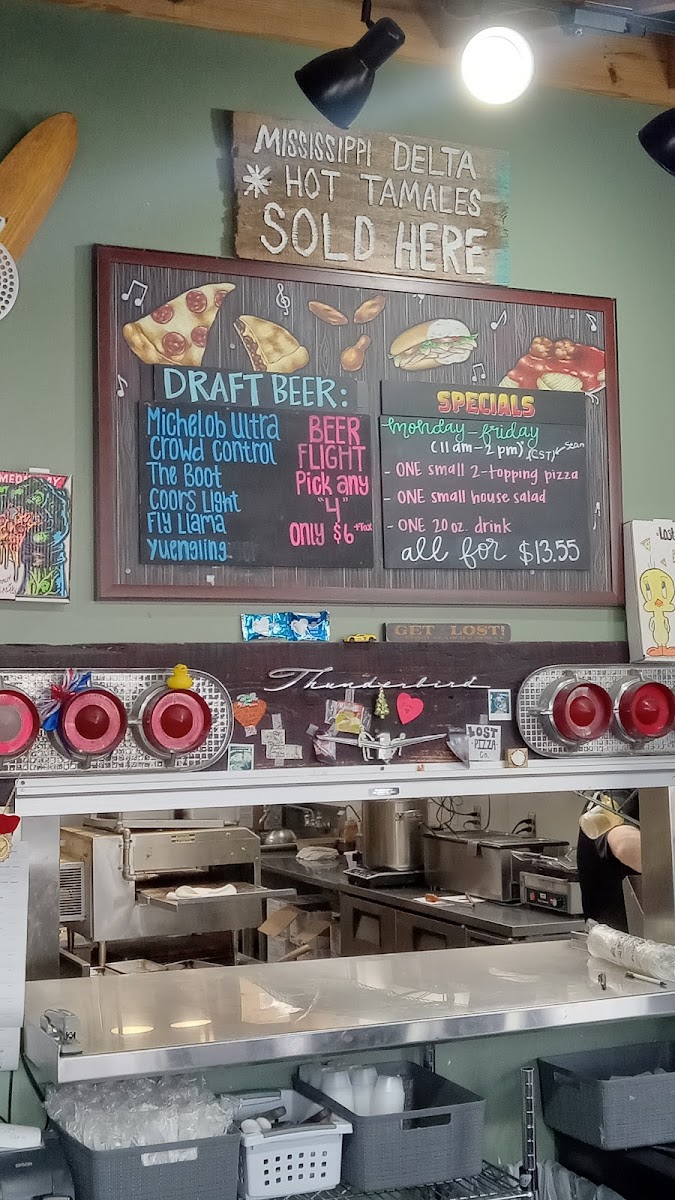 MISSISSIPPI DELTA
* HOT TAMALES
SOLD HERE
DRAFT BEER:
Michelob Ultra
Crowd Control
The Boot
Coors Light
Fly Llama
Yuengling
BEER
FLIGHT
Pick any
"4"
only $6 +Tax
SPECIALS
Monday-Friday
(11am-2pm) (CST) Sean
- ONE small 2-topping pizza
- ONE small house salad
- ONE 20 oz. drink
all for $13.55
GET LOST!
Thunderbird
LOST
PIZZA
Co.
Lost
EPSON